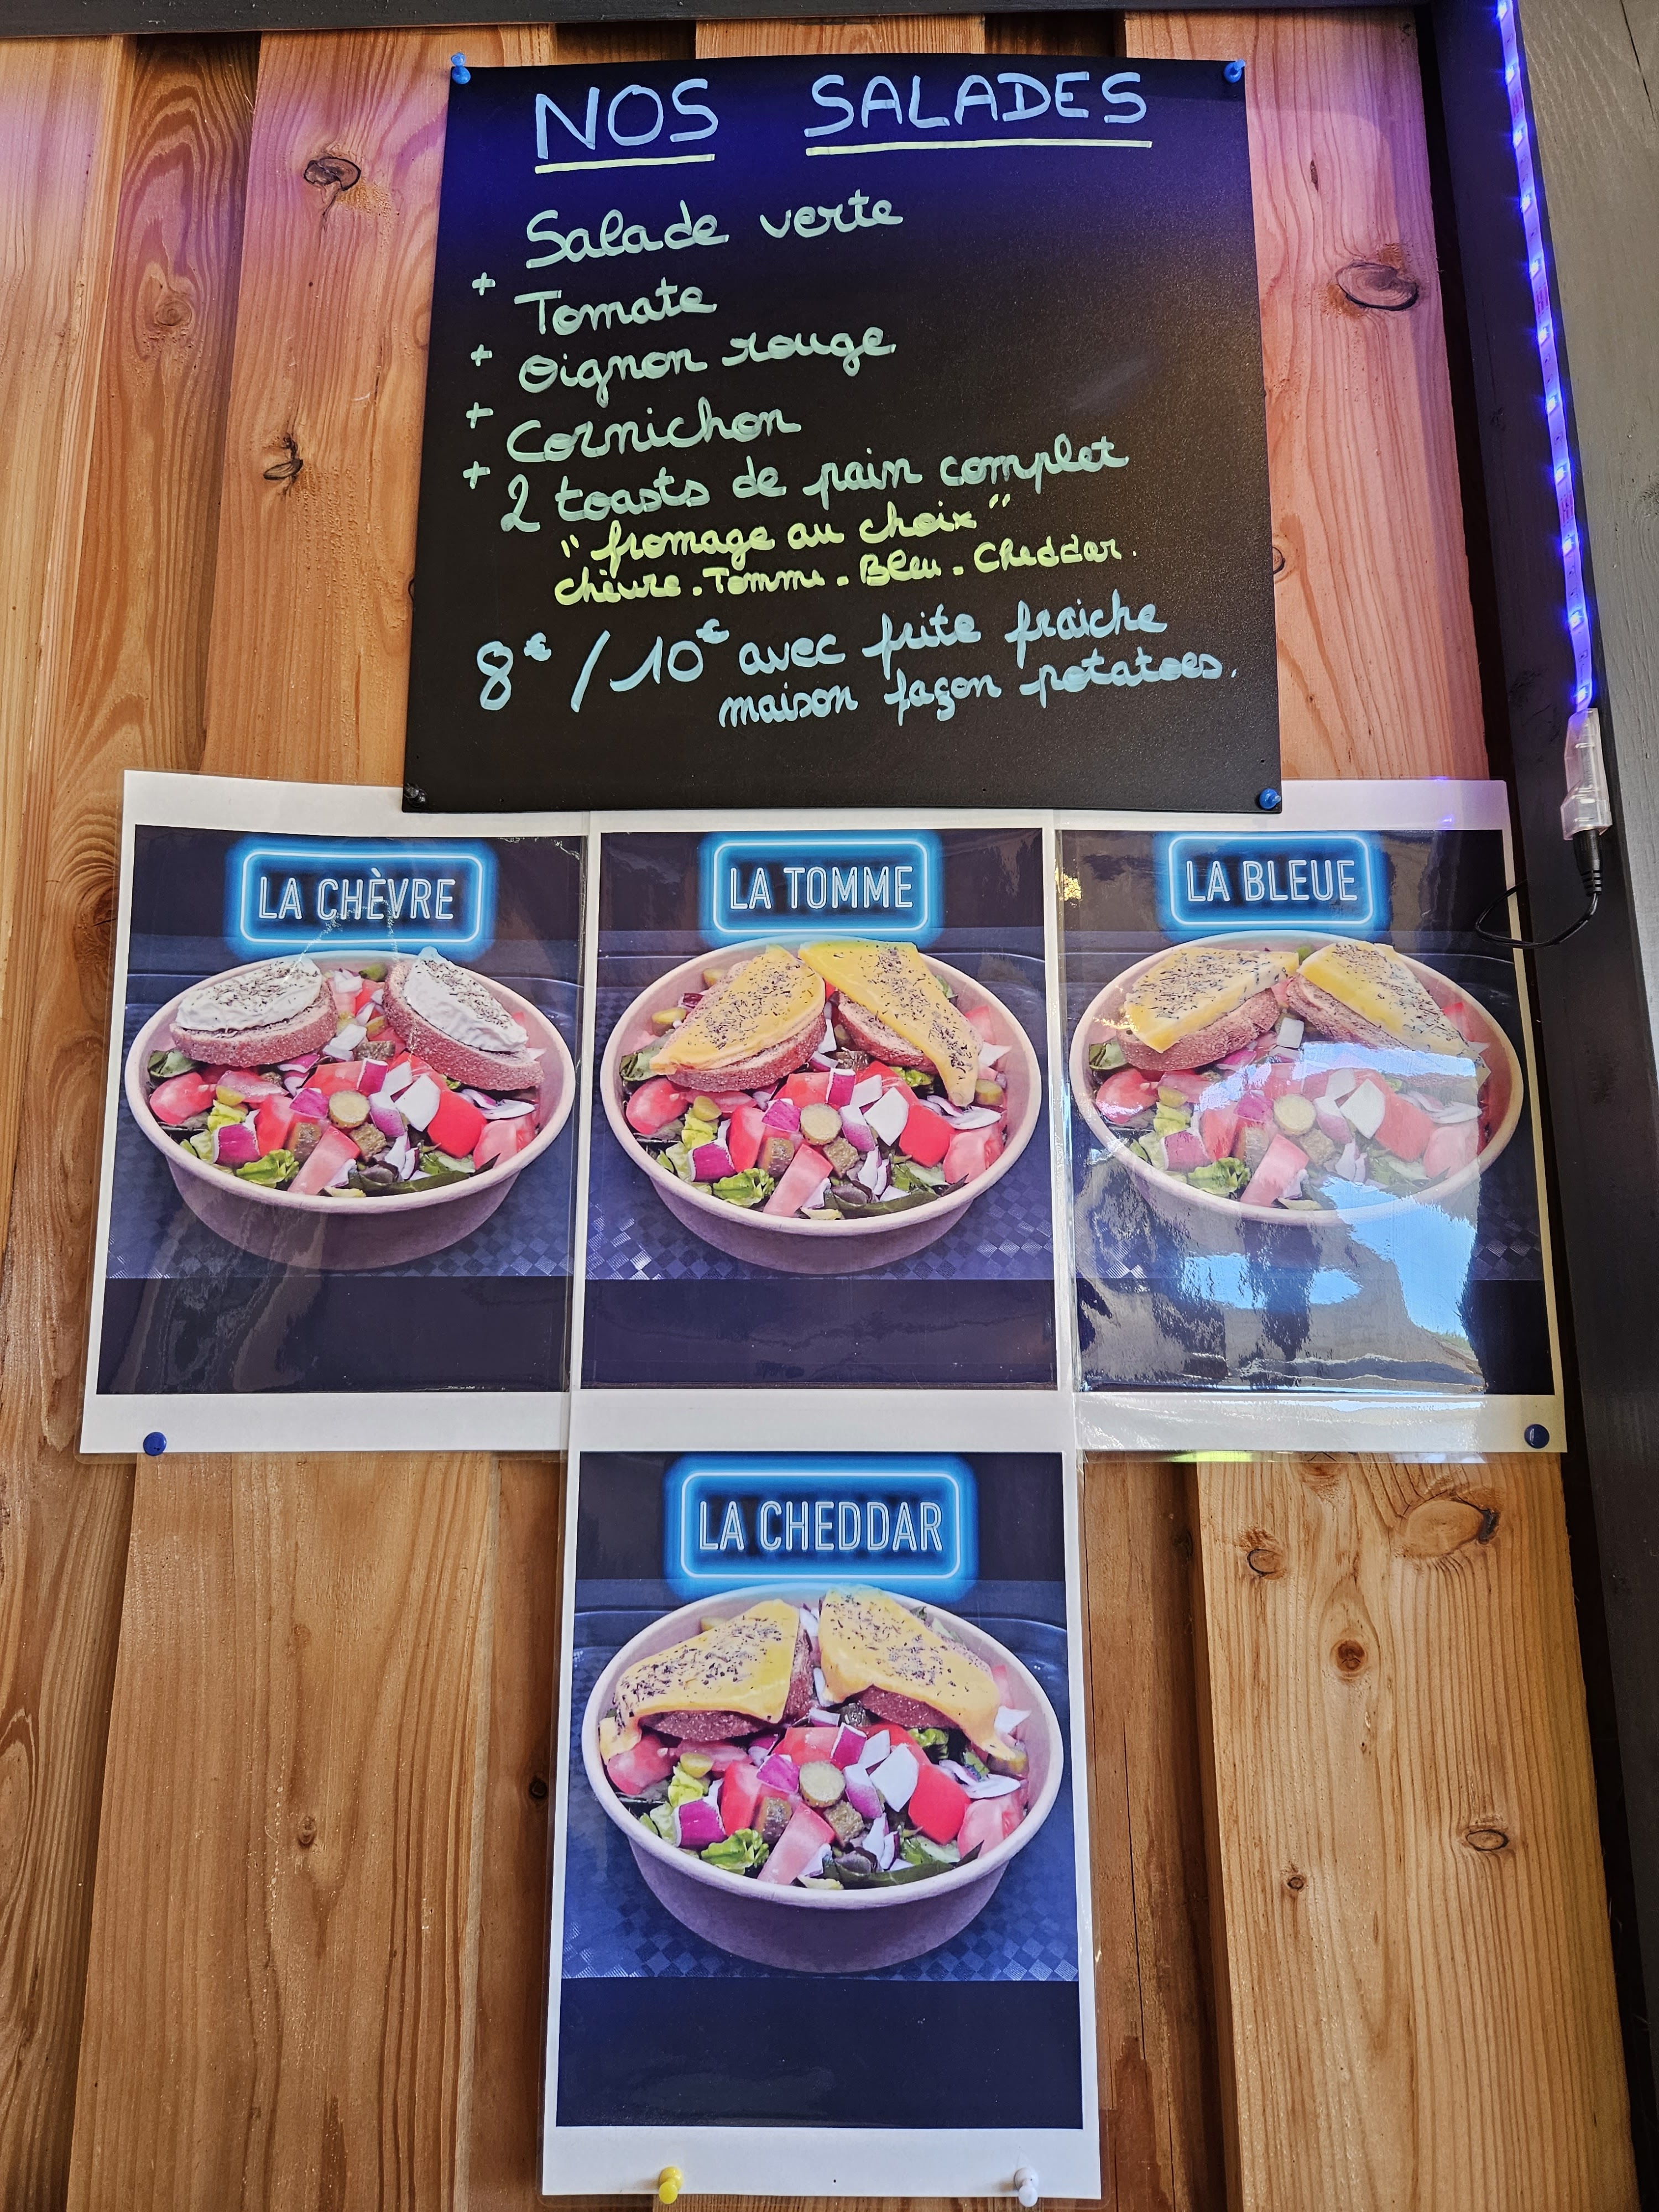 NOS SALADES
Salade verte
+ Tomate
+ Oignon rouge
+ Cornichon
+ 2 toasts de pain complet
"fromage au choix"
chèvre . Tomme . Bleu . Cheddar.
8€ / 10€ avec frite fraiche
maison façon potatoes.
LA CHÈVRE
LA TOMME
LA BLEUE
LA CHEDDAR